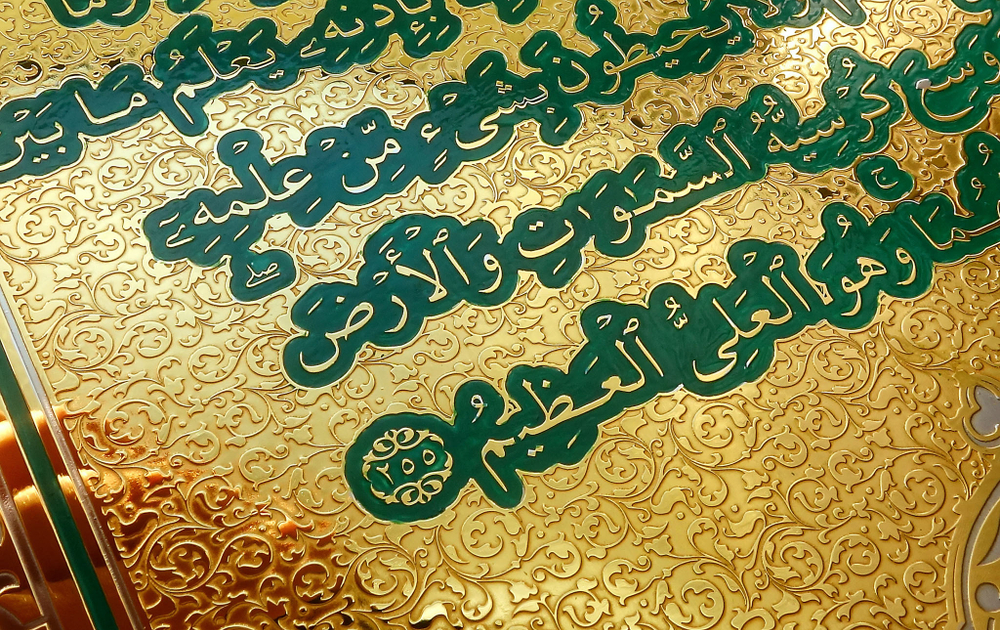 بِإِذْنِهِۦ يَعْلَمُ مَا بَيْنَ
يُحِيطُونَ بِشَىْءٍ مِّنْ عِلْمِهِۦٓ
صلے
كُرْسِيُّهُ ٱلسَّمَـٰوَٰتِ وَٱلْأَرْضَ
ج
وَهُوَ ٱلْعَلِىُّ ٱلْعَظِيمُ ٢٥٥